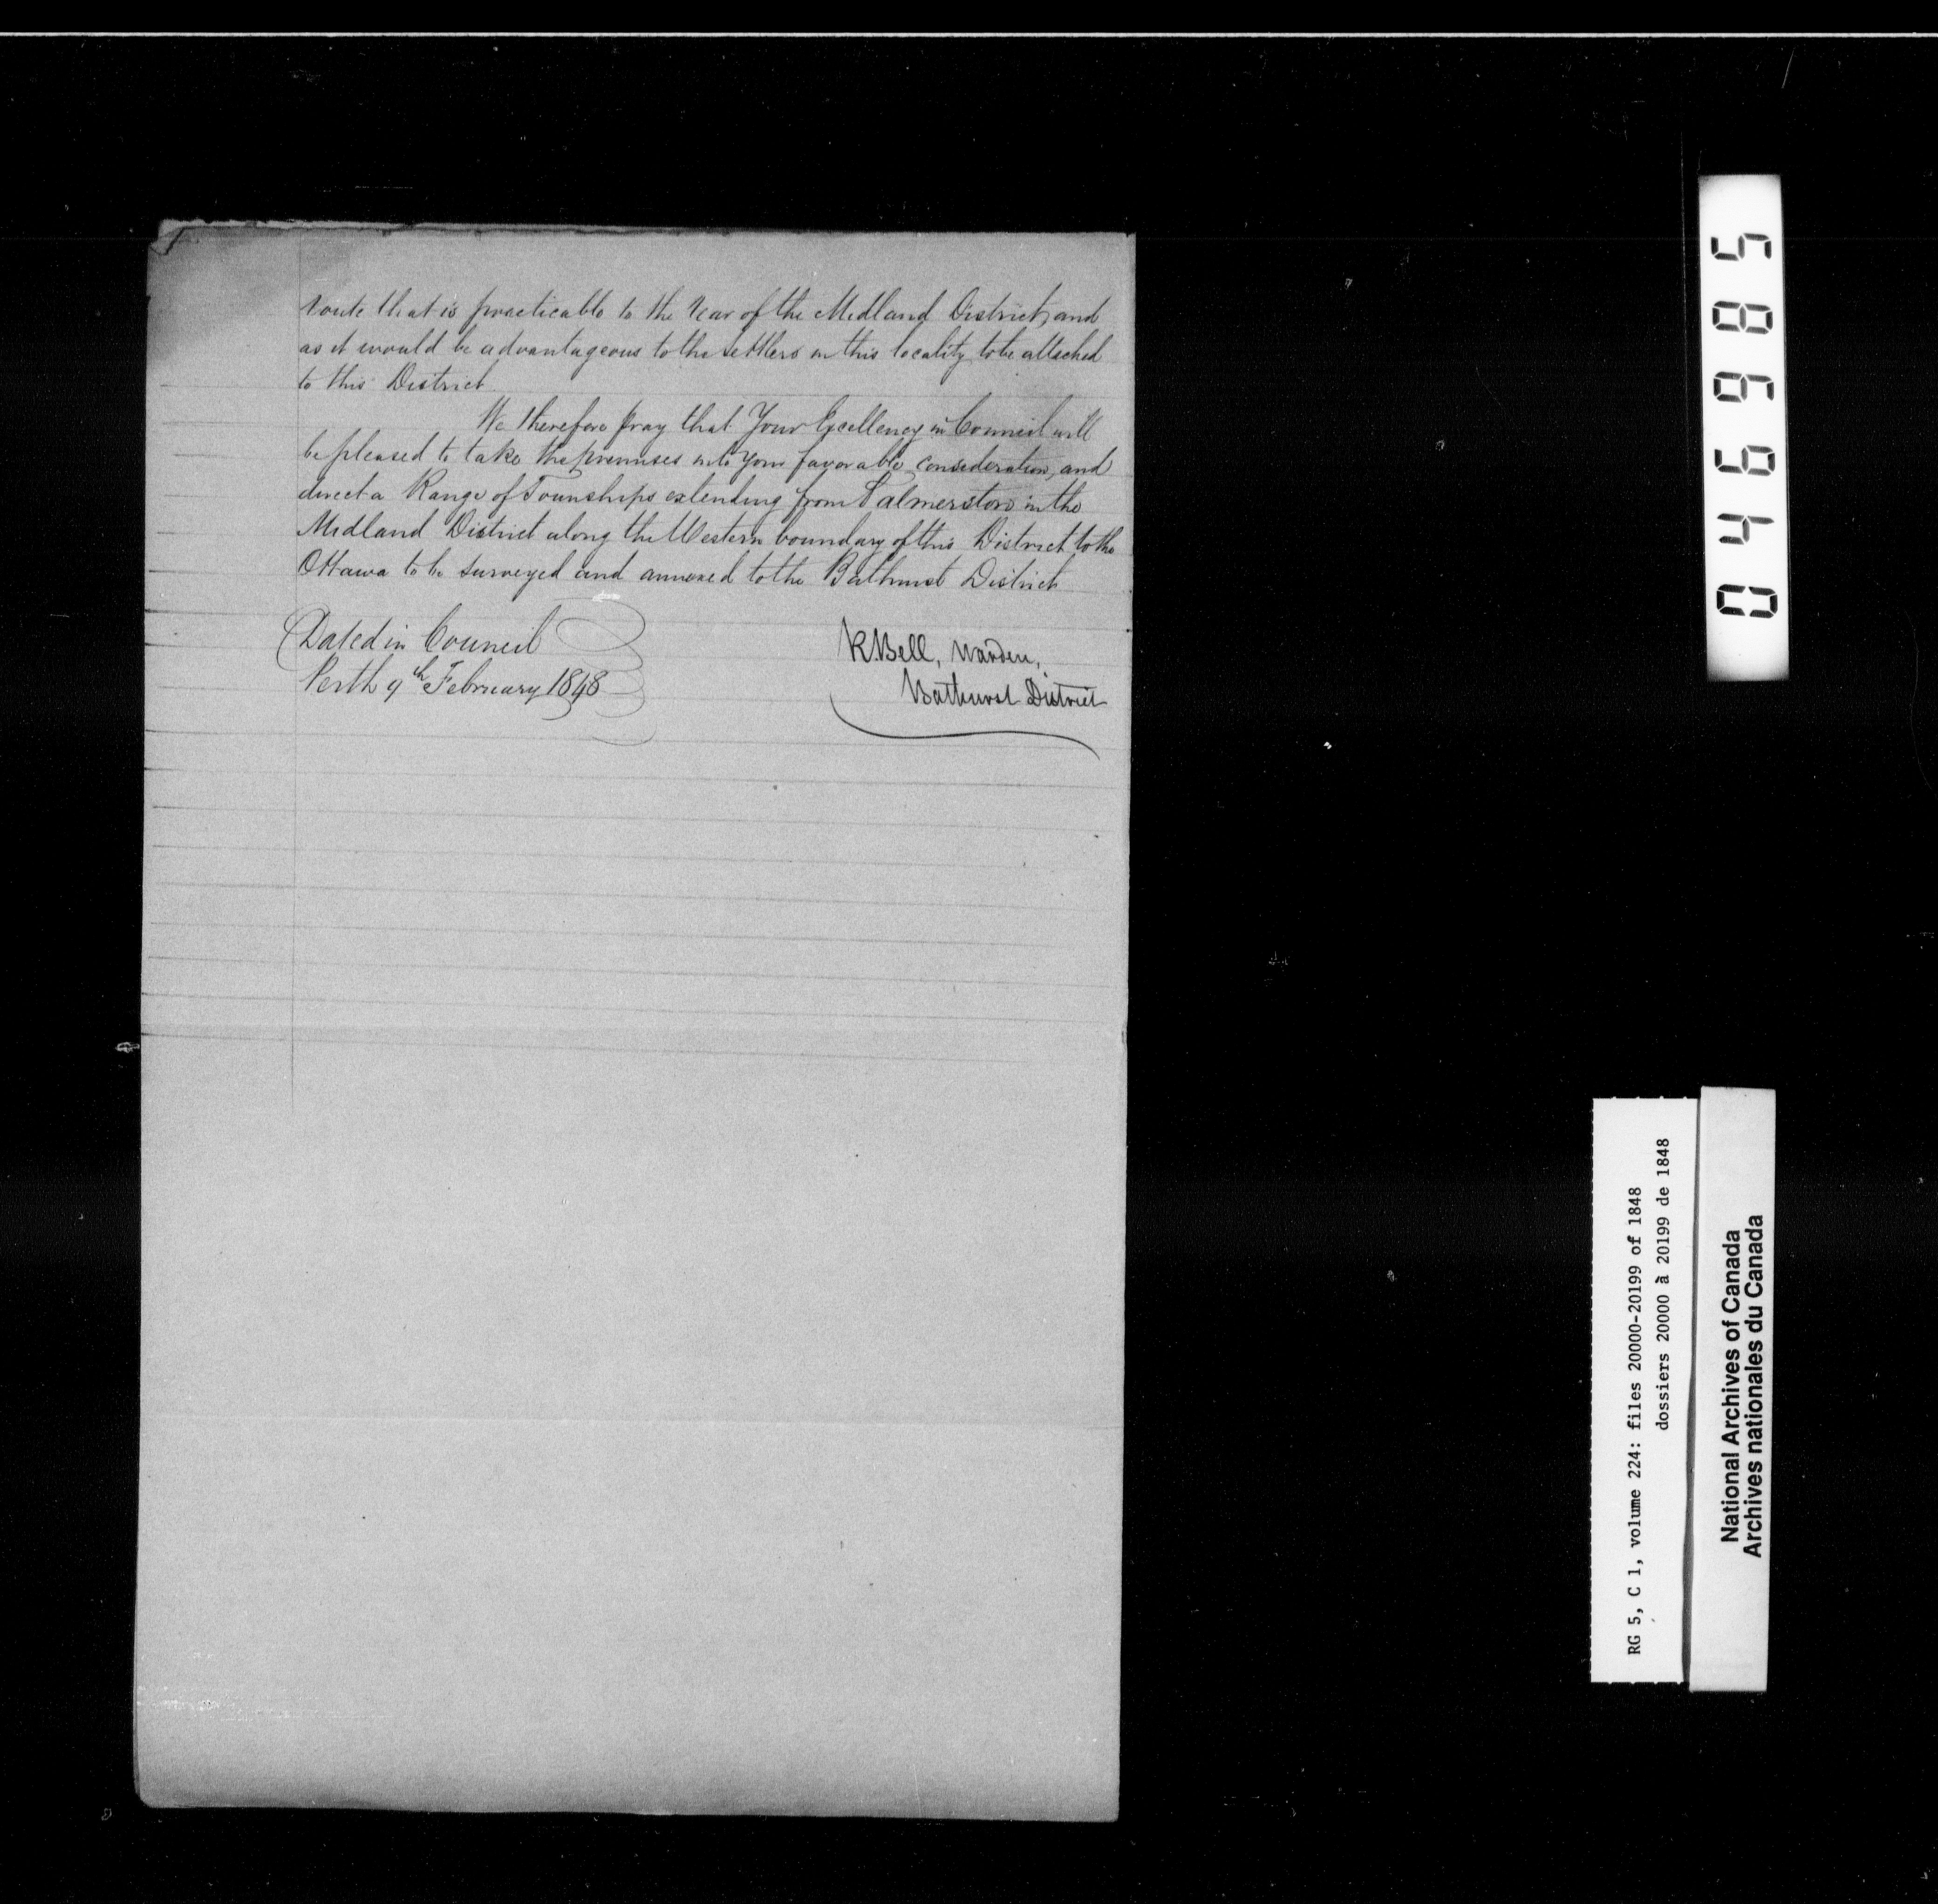 route that is practicable to the rear of the Midland District, and
as it would be advantageous to the settlers in this locality to be attached
to this District
We therefore pray that Your Excellency in Council will
be pleased to take the premises into your favorable consideration, and
direct a Range of Townships extending from Palmerston in the
Midland District along the Western boundary of this District to the
Ottawa to be surveyed and annexed to the Bathurst District
Dated in Council
Perth 9th February 1848
R Bell, Warden,
Bathurst District
046985
RG 5, C 1, volume 224: files 20000-20199 of 1848
dossiers 20000 à 20199 de 1848
National Archives of Canada
Archives nationales du Canada